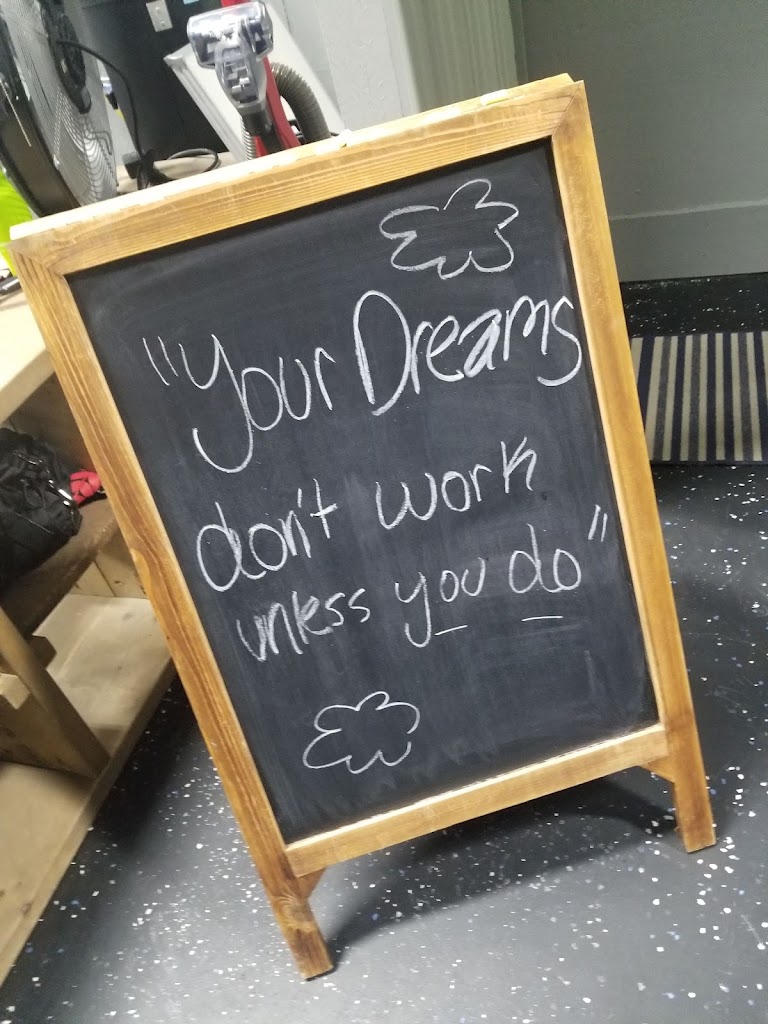 "Your Dreams
don't work
unless you do"